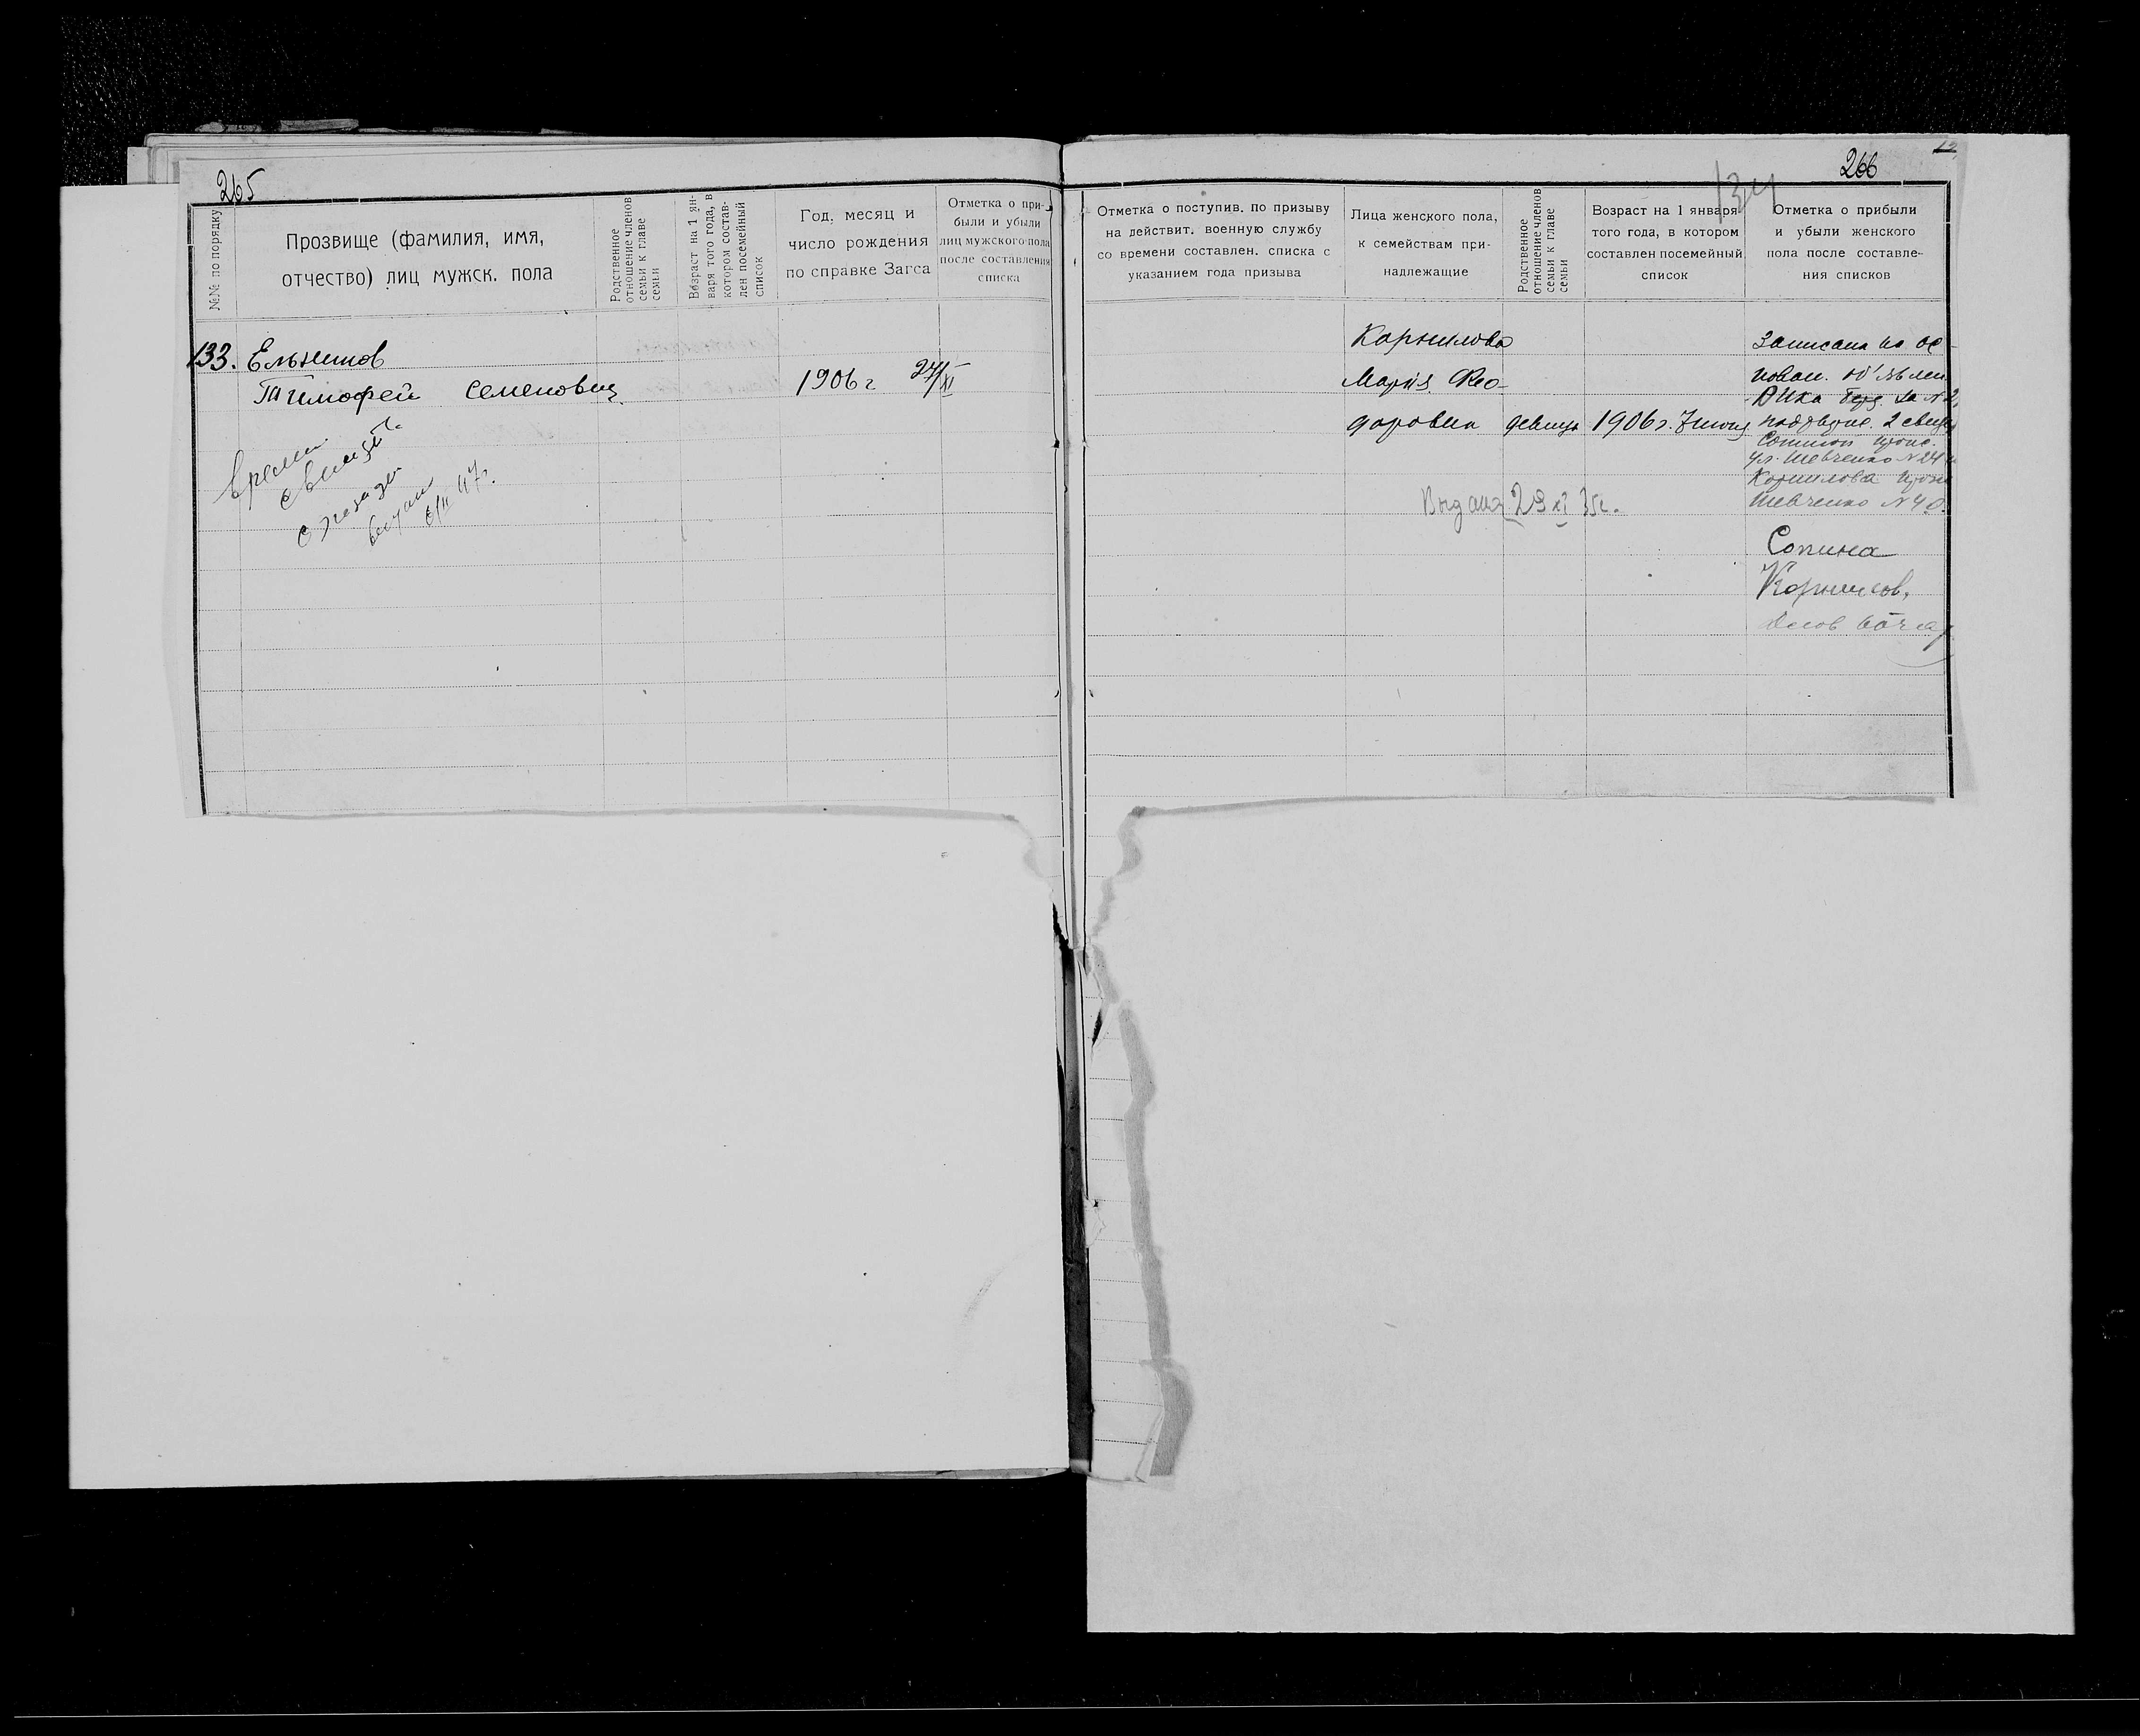 265
№№ по порядку
Прозвище (фамилия, имя,
отчество) лиц мужск. пола
Родственное
отношение членов
семьи к главе
семьи
Возраст на 1 ян-
варя того года, в
котором состав-
лен посемейный
список
Год, месяц и
число рождения
по справке Загса
Отметка о при-
были и убыли
лиц мужского пола
после составления
списка
133.
Тимофей Семенович
1906 г 24/XI
266
134
12
Отметка о поступив. по призыву
на действит. военную службу
со времени составлен. списка с
указанием года призыва
Лица женского пола,
к семействам при-
надлежащие
Родственное
отношение членов
семьи к главе
семьи
Возраст на 1 января
того года, в котором
составлен посемейный
список
Отметка о прибыли
и убыли женского
пола после составле-
ния списков
Корнилова
Мария Фео-
доровна девица 1906 г. 7 июня
Записана на ос-
нован. об'явлен.
2 свид
ул. Шевченко N 24
Корнилова прож
Шевченко N 40
Выдана 29 XI 35 г.
Сопина